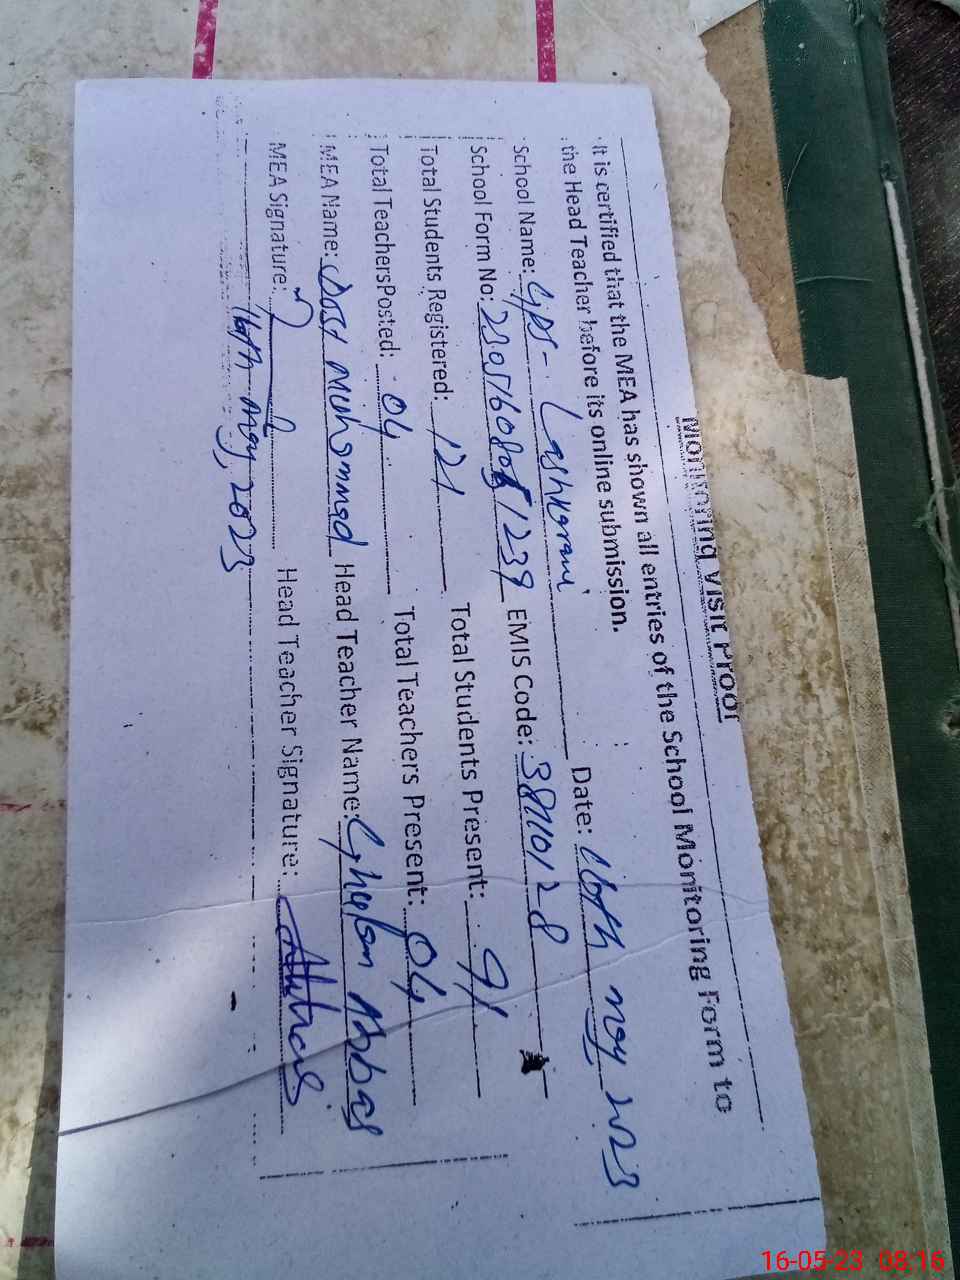 Monitoring Visit Proof
It is certified that the MEA has shown all entries of the School Monitoring Form to
the Head Teacher before its online submission.
School Name: GPS - Lashkarani Date: 16th May 2023
School Form No: EMIS Code: 38710128
Total Students Registered: 121 Total Students Present: 91
Total Teachers Posted: 04 Total Teachers Present: 04
MEA Name: Dost Muhammad Head Teacher Name: Ghulam Abbas
MEA Signature: Head Teacher Signature:
16th May, 2023
16-05-23 08:16